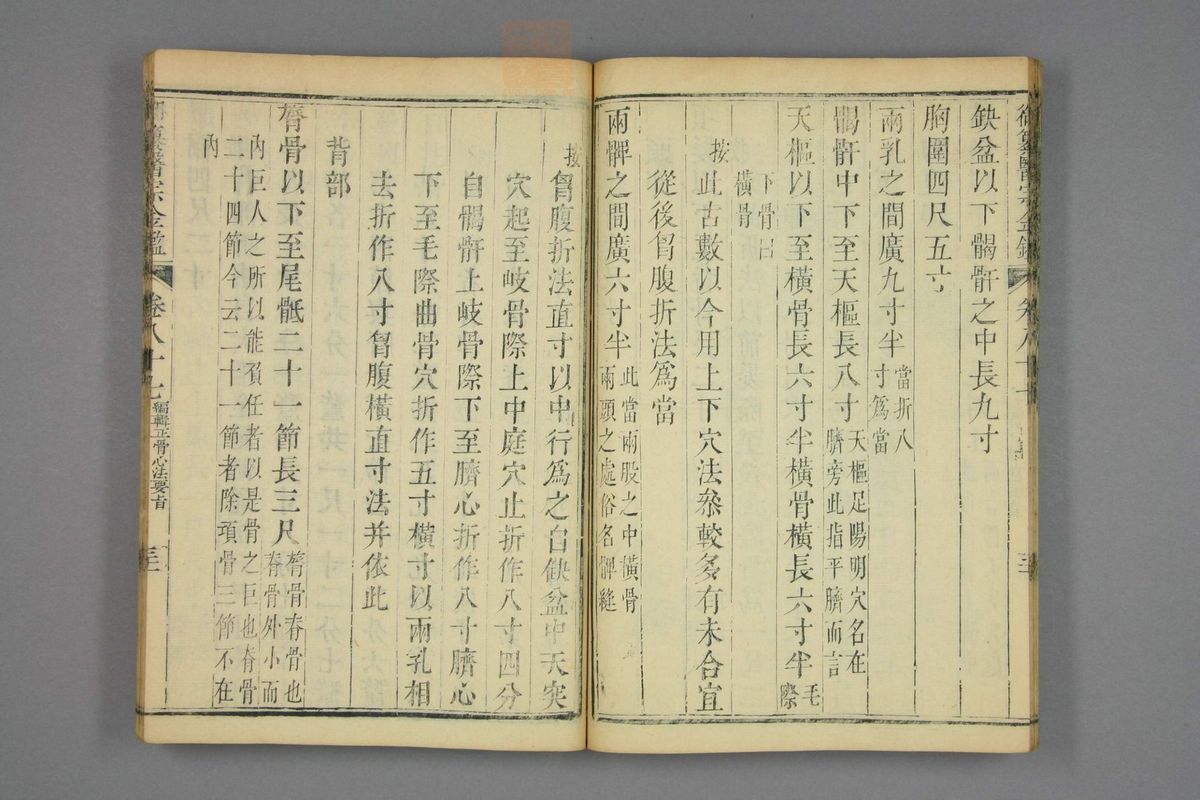 缺盆以下𩩲骬之中長九寸
胸圍四尺五寸
兩乳之間廣九寸半當折八寸爲當
𩩲骬中下至天樞長八寸天樞足陽明穴名在臍旁此指平臍而言
天樞以下至橫骨長六寸半橫骨橫長六寸半毛際
下骨曰橫骨
按此古數以今用上下穴法叅較多有未合宜
從後胷腹折法爲當
兩髀之間廣六寸半此當兩股之中橫骨兩頭之處俗名髀縫
按胷腹折法直寸以中行爲之自缺盆中天突
穴起至岐骨際上中庭穴止折作八寸四分
自𩩲骬上岐骨際下至臍心折作八寸臍心
下至毛際曲骨穴折作五寸橫寸以兩乳相
去折作八寸胷腹橫直寸法并依此
背部
膂骨以下至尾骶二十一節長三尺膂骨脊骨也脊骨外小而
內巨人之所以能負任者以是骨之巨也脊骨
二十四節今云二十一節者除項骨三節不在
內
御纂醫宗金鑑 卷八十七 編輯正骨心法要旨 三